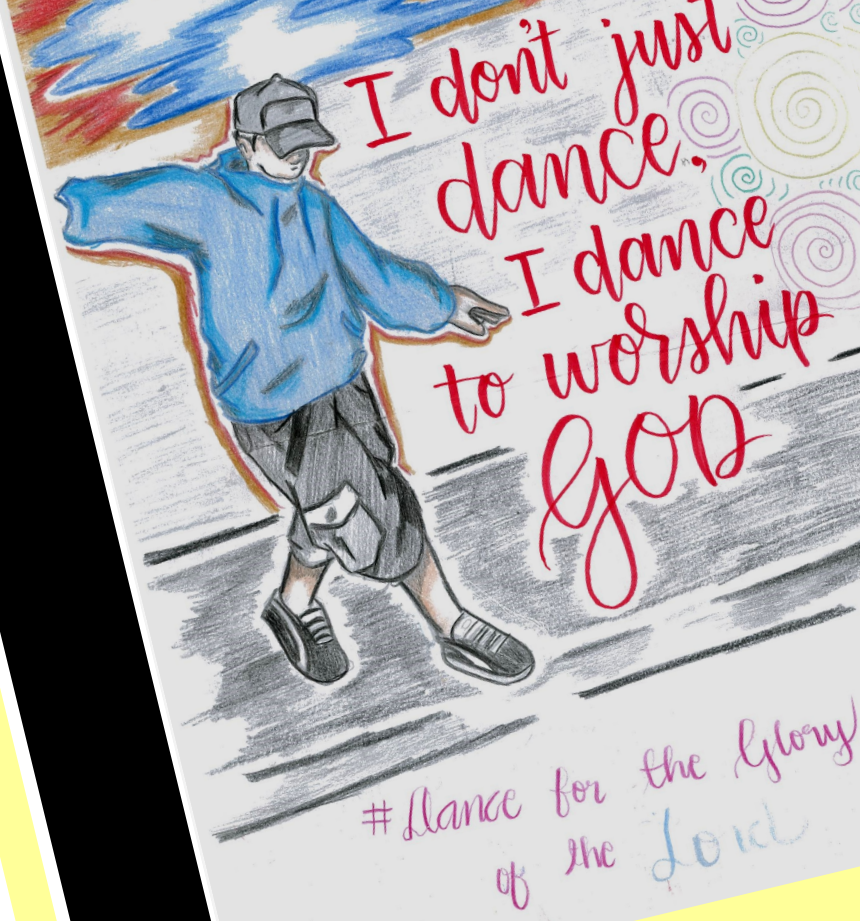 I don't just
dance,
I dance
to worship
GOD
#Dance for the Glory
of the Lord